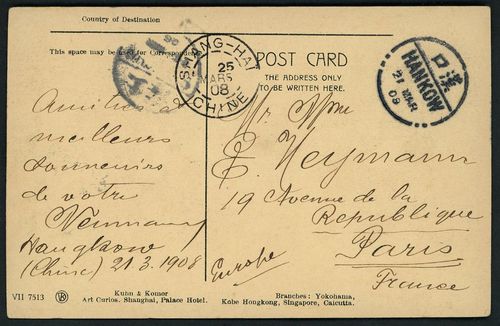 Country of Destination
This space may be used for Correspondence
POST CARD
THE ADDRESS ONLY
TO BE WRITTEN HERE.
SHANG-HAI
25
MARS
08
CHINE
口漢
HANKOW
21 MAR
08
Amitiés
meilleurs
souvenirs
de votre
Neumann
Hangkow
(Chine) 21.3.1908
Mr Mme
E. Heymann
19 Avenue de la
Republique
Paris
France
Europe
VII 7513
Kuhn & Komor
Art Curios. Shanghai, Palace Hotel.
Branches: Yokohama,
Kobe Hongkong, Singapore, Calcutta.